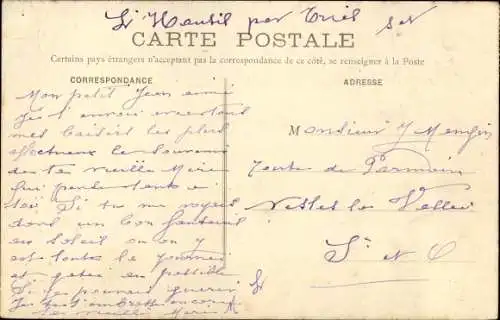 L'Hautil par Triel S et
CARTE POSTALE
Certains pays étrangers n'acceptant pas la correspondance de ce côté, se renseigner à la Poste
CORRESPONDANCE
ADRESSE
Mon petit Jean aimé
Je t'envoi
mes baisers les plus
affectueux le souvenir
de ta vieille Mère
qui pense tant a
toi Si tu me voyais
dans un bon fauteuil
au soleil ou on y
est toute la journée
et gatée
Si je pouvais guerir
Je t'embrasse encore
ta vieille Mère
Monsieur J Mengin
Route de Parmain
Nesles la Vallée
S. et O